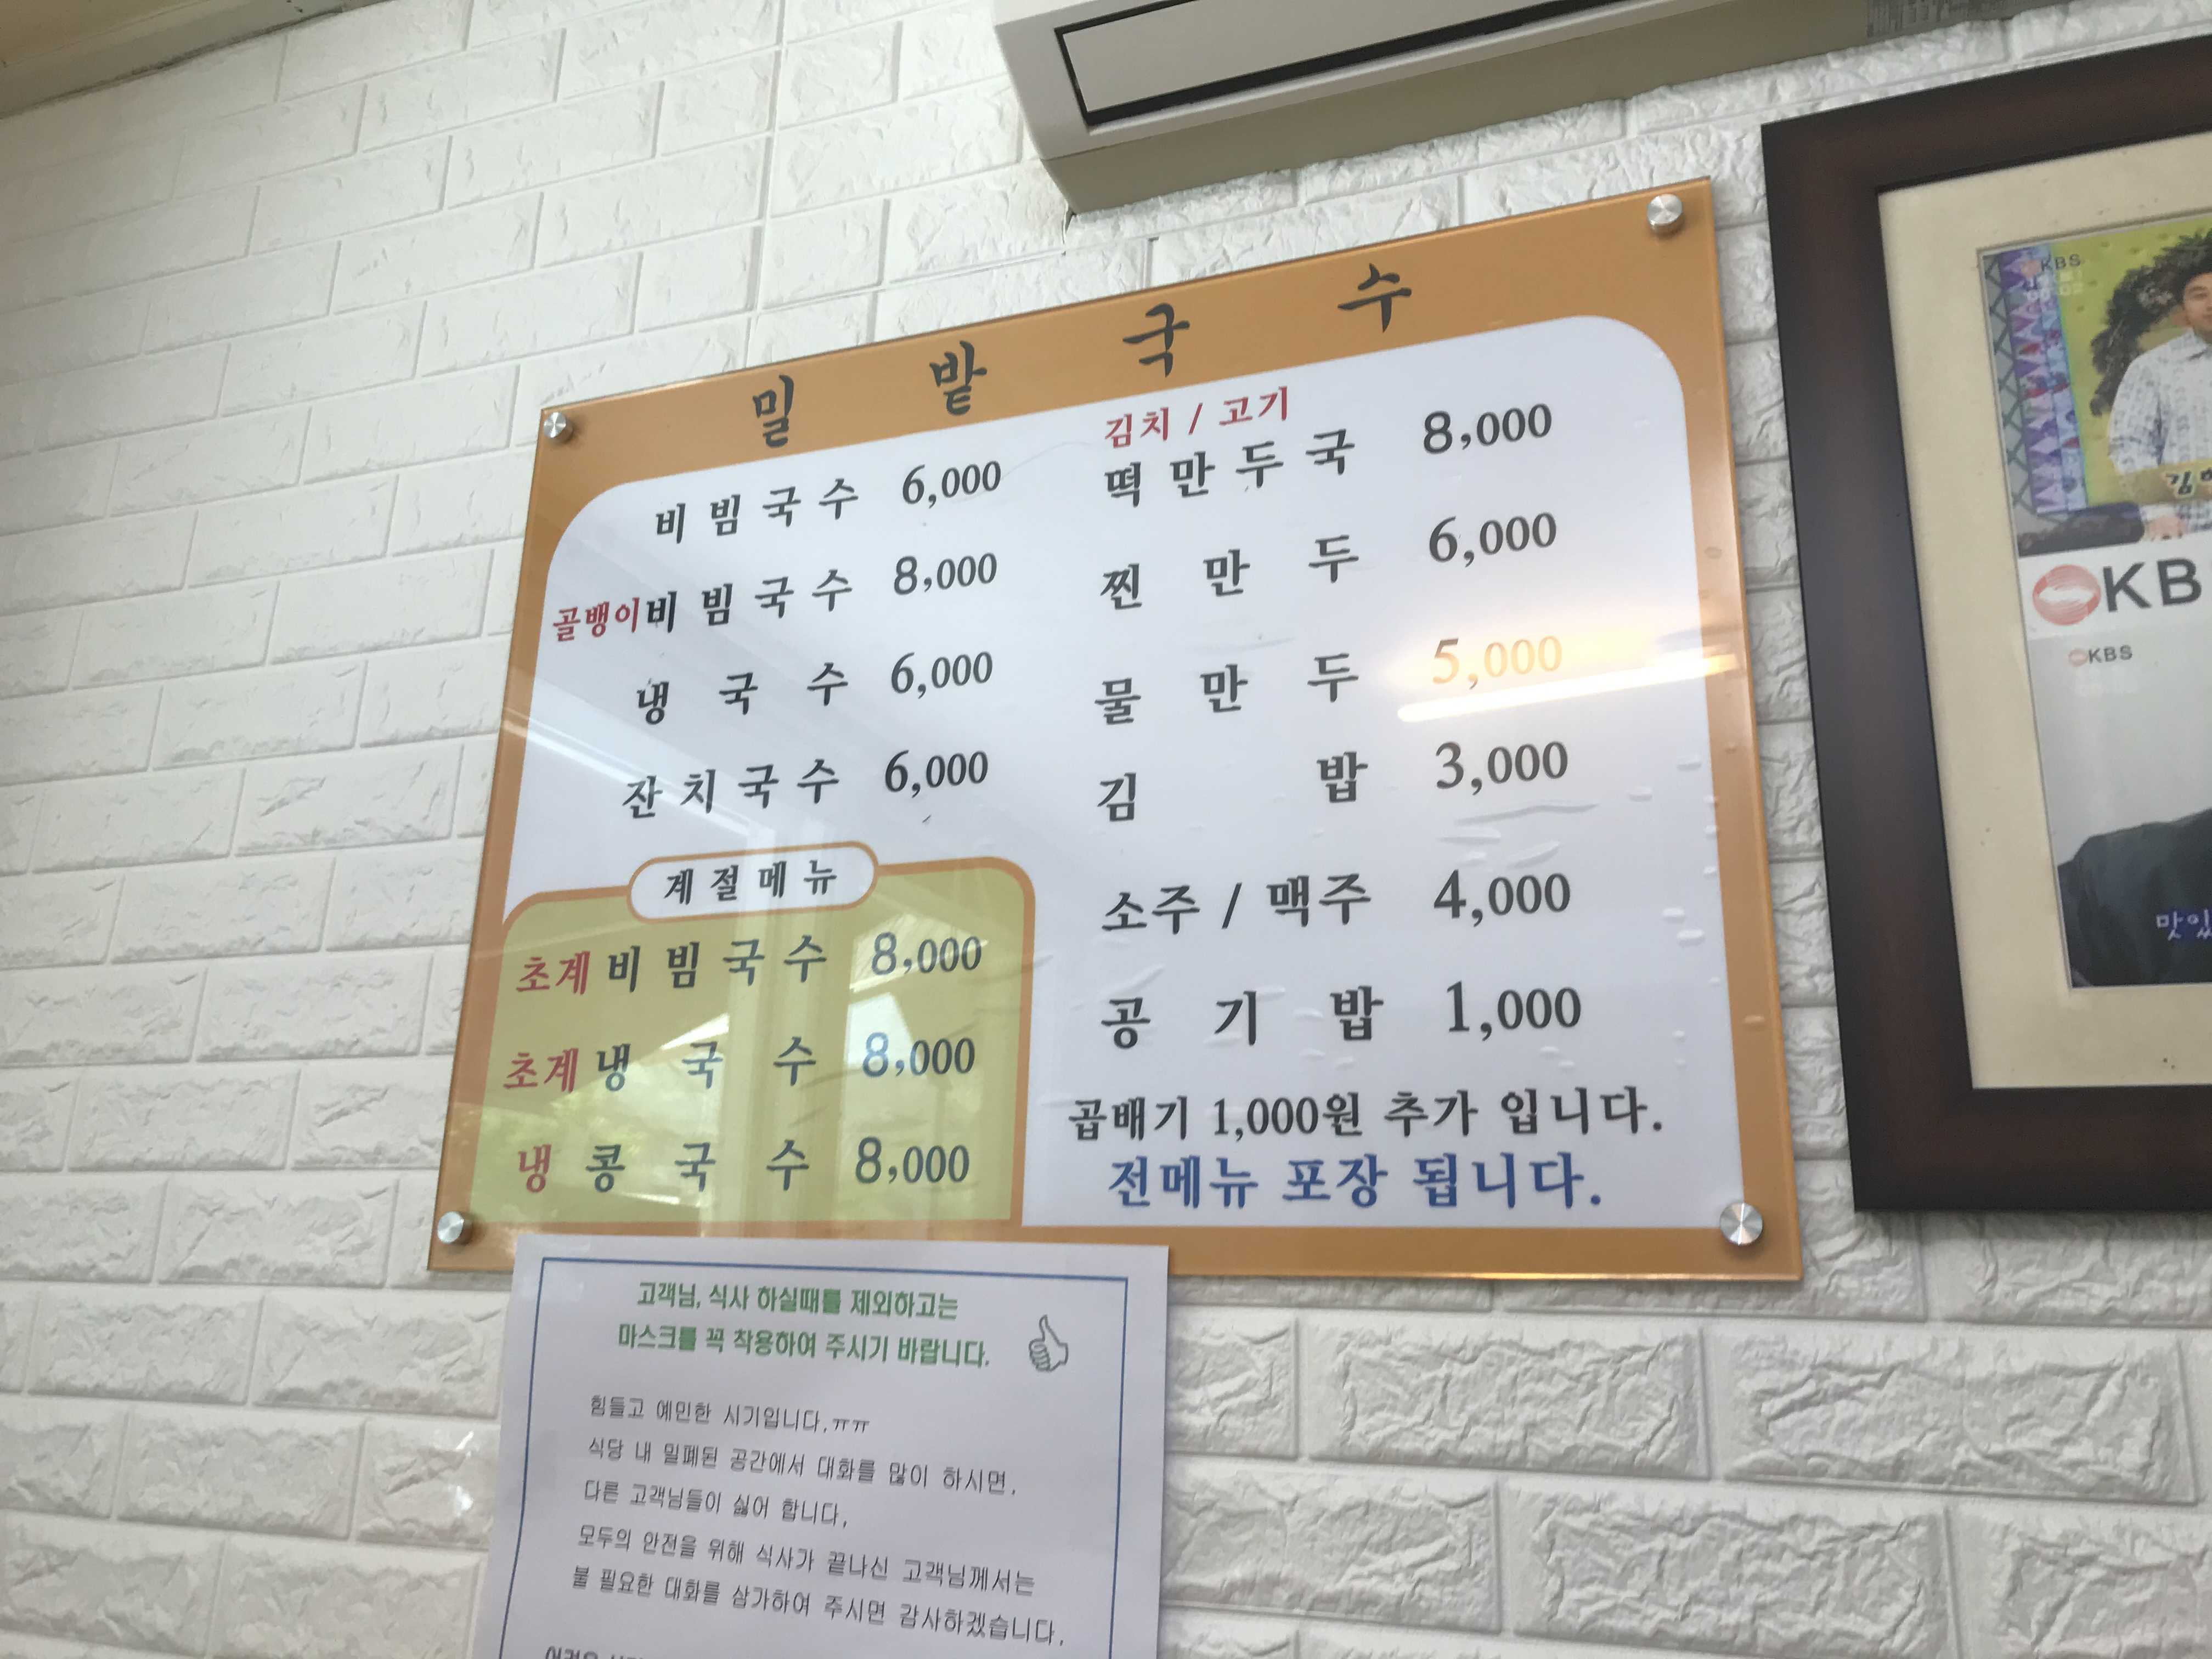 밀 밭 국 수
비 빔 국 수 6,000
골뱅이비 빔 국 수 8,000
냉 국 수 6,000
잔 치 국 수 6,000
계 절 메 뉴
초계 비 빔 국 수 8,000
초계 냉 국 수 8,000
냉 콩 국 수 8,000
김치 / 고기
떡 만 두 국 8,000
찐 만 두 6,000
물 만 두 5,000
김 밥 3,000
소주 / 맥주 4,000
공 기 밥 1,000
곱배기 1,000원 추가 입니다.
전메뉴 포장 됩니다.
고객님, 식사 하실때를 제외하고는
마스크를 꼭 착용하여 주시기 바랍니다.
힘들고 예민한 시기입니다.ㅠㅠ
식당 내 밀폐된 공간에서 대화를 많이 하시면,
다른 고객님들이 싫어 합니다,
모두의 안전을 위해 식사가 끝나신 고객님께서는
불 필요한 대화를 삼가하여 주시면 감사하겠습니다,
KBS
KBS